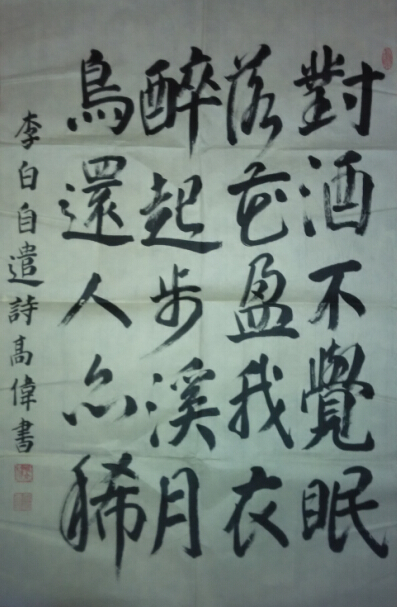 對酒不覺眠
落花盈我衣
醉起步溪月
鳥還人亦稀
李白自遣詩高偉書